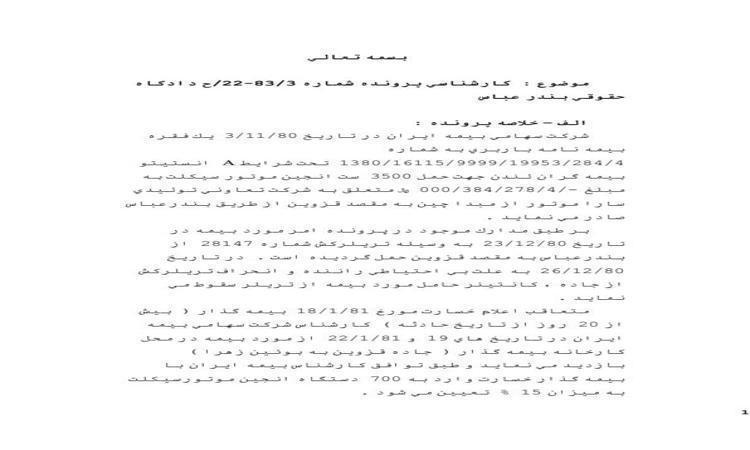 بسمه تعالي
موضوع : كارشناسي پرونده شماره 22-83/3/ح دادگاه
حقوقي بندر عباس
الف – خلاصه پرونده :
شركت سهامي بيمه ايران در تاريخ 3/11/80 يك فقره
بيمه نامه باربري به شماره
1380/16115/9999/19953/284/4 تحت شرايط A انستيتو
بيمه گران لندن جهت حمل 3500 ست انجين موتور سيكلت به
مبلغ -/000/384/278/4 ريال متعلق به شركت تعاوني توليدي
سارا موتور از مبدا چين به مقصد قزوين از طريق بندرعباس
صادر مي نمايد .
بر طبق مدارك موجود در پرونده امر مورد بيمه در
تاريخ 23/12/80 به وسيله تريلركش شماره 28147 از
بندرعباس به مقصد قزوين حمل گرديده است . در تاريخ
26/12/80 به علت بي احتياطي راننده و انحراف تريلركش
از جاده ، كانتينر حامل مورد بيمه از تريلر سقوط مي
نمايد .
متعاقب اعلام خسارت مورخ 18/1/81 بيمه گذار ( بيش
از 20 روز از تاريخ حادثه ) كارشناس شركت سهامي بيمه
ايران در تاريخ هاي 19 و 22/1/81 از مورد بيمه در محل
كارخانه بيمه گذار ( جاده قزوين به بوئين زهرا )
بازديد مي نمايد و طبق توافق كارشناس بيمه ايران با
بيمه گذار خسارت وارد به 700 دستگاه انجين موتورسيكلت
به ميزان 15 % تعيين مي شود .
1